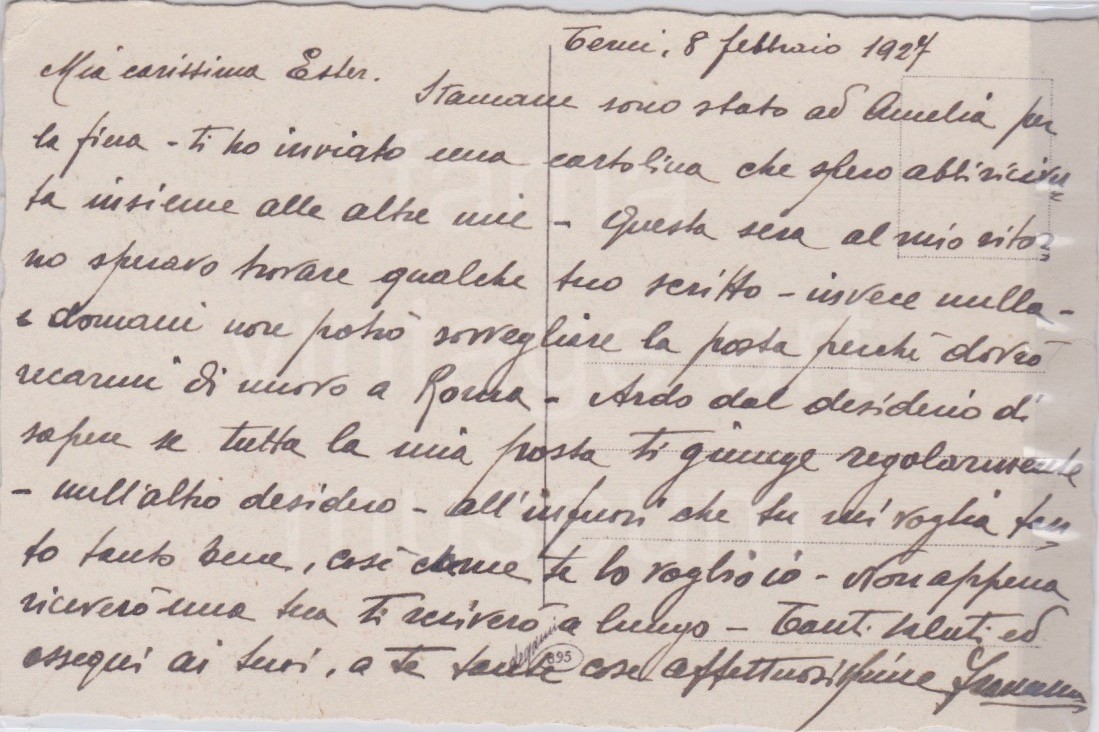 Terni, 8 febbraio 1927
Mia carissima Ester.
Stamane sono stato ad Amelia per
la fiera - ti ho inviato una cartolina che spero abbi ricevu
ta insieme alle altre mie - Questa sera al mio ritor
no speravo trovare qualche tuo scritto - invece nulla -
e domani non potrò sorvegliare la posta perchè dovrò
recarmi di nuovo a Roma - Ardo dal desiderio di
sapere se tutta la mia posta ti giunge regolarmente
- null'altro desidero - all'infuori che tu mi voglia tan
to tanto bene, così come te lo voglio io - Non appena
riceverò una tua ti scriverò a lungo - Tanti saluti ed
ossequi ai tuoi, a te tante cose affettuosissime
degami 895
fama
vintage art
museum